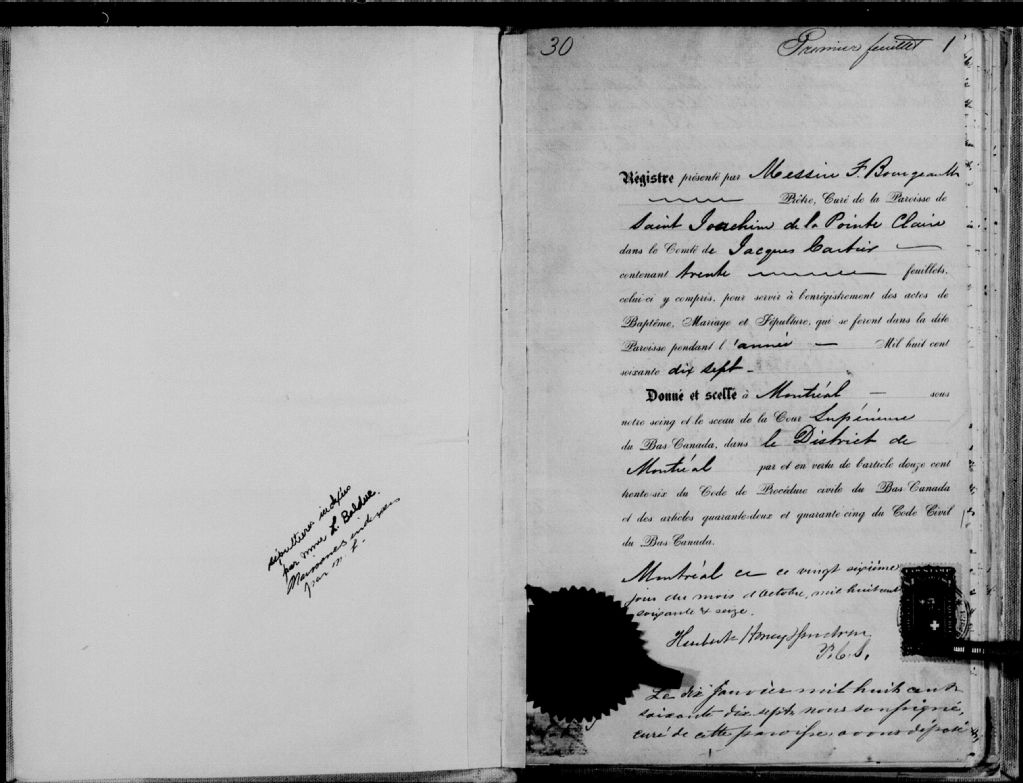 sépultures indexées
par mme L. Balduc.
par M. L.
30 Premier feuillet 1
Régistre présenté par Messire F. Bourgeault
Prêtre, Curé de la Paroisse de
Saint Joachim de la Pointe Claire
dans le Comté de Jacques Cartier
contenant trente feuillets,
celui-ci y compris, pour servir à l'enrégistrement des actes de
Baptême, Mariage et Sépulture, qui se feront dans la dite
Paroisse pendant l'année Mil huit cent
soixante dix sept
Donné et scellé à Montréal sous
notre seing et le sceau de la Cour Supérieure
du Bas-Canada, dans le District de
Montréal par et en vertu de l'article douze cent
trente-six du Code de Procédure civile du Bas-Canada
et des articles quarante-deux et quarante-cinq du Code Civil
du Bas-Canada.
Montréal ce ce vingt sixième
jour du mois d'Octobre, mil huit cent
soixante & seize.
P.C.S.
Le dix Janvier mil huit cent
soixante dix sept nous soussigné,
curé de cette paroisse avons déposé